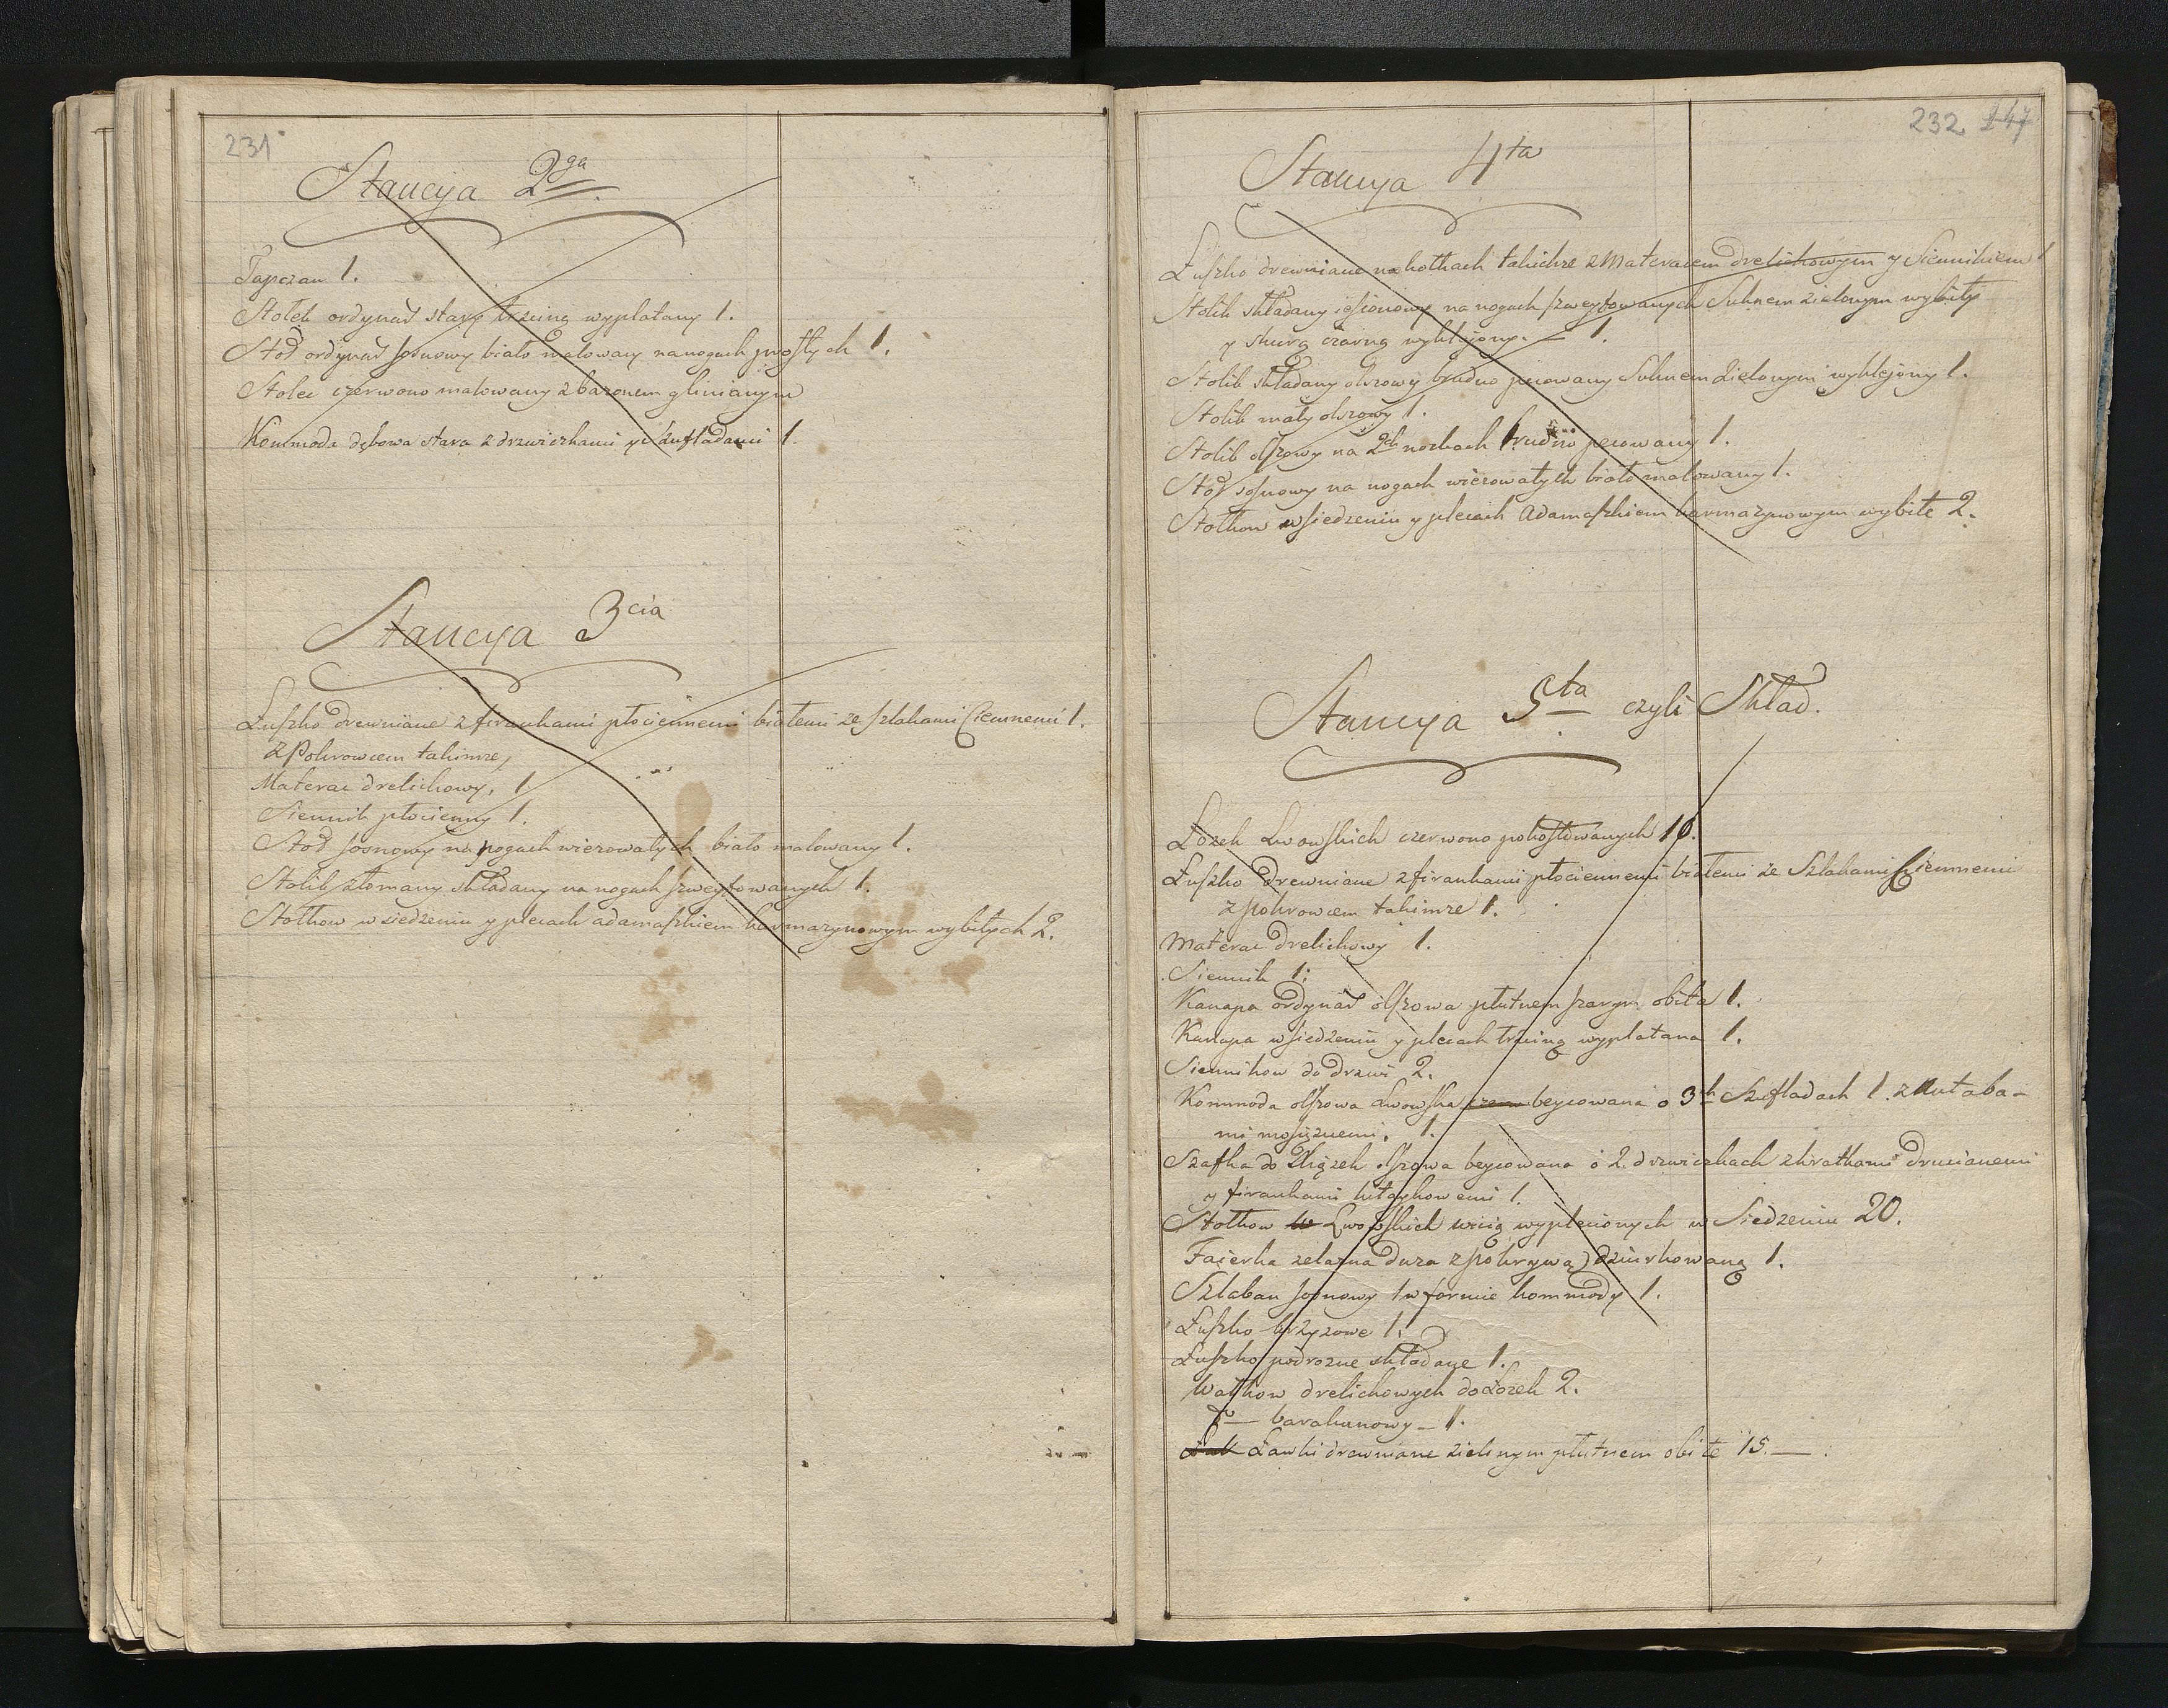 231
Stancya 2ga
Tapczan 1.
Stołek ordynar stary trzciną wyplatany 1.
Stoł ordynar sosnowy biało malowany na nogach prostych 1.
Stolec czerwono malowany z bazonem glinianym
Kommoda dębowa stara z drzwiczkami y szufladami 1.
Stancya 3cia
Łuszko drewniane z firankami płociennemi białemi ze szlakami Ciemnemi 1.
z Pokrowcem takimze,
Materac drelichowy, 1.
Siennik płocienny 1.
Stoł sosnowy na nogach wierowatych biało malowany 1.
Stolik złomany składany na nogach szweyfowanych 1.
Stołkow w siedzeniu y plecach adamaszkiem karmazynowym wybitych 2.
232 147
Stancya 4ta
Łuszko drewniane na kołkach takichze z Materacem drelichowym y Siennikiem 1
Stolik składany jesionowy na nogach szweyfowanych Suknem zielonym wybity
y skurą czarną wyklejony. — 1.
Stolik składany olszowy brudno pecowany Suknem Zielonym wyklejony 1.
Stolik mały olszowy 1.
Stolik olszowy na 2ch nozkach brudno pecowany 1.
Stoł sosnowy na nogach wierowatych biało malowany 1.
Stołkow w siedzeniu y plecach Adamaszkiem karmazynowym wybite 2.
Stancya 5ta czyli Skład.
Łozek Lwowskich czerwono pokostowanych 10.
Łuszko drewniane z firankami płociennemi białemi ze Szlakami Ciemnemi
z pokrowcem takimze 1.
Materac drelichowy 1.
Siennik 1.
Kanapa ordynar olszowa płutnem szarym obita 1.
Kanapa w siedzeniu y plecach trzciną wyplatana 1.
Siennikow do drzwi 2.
Kommoda olszowa Lwowska beycowana o 3ch Szufladach 1. z Antaba-
mi mosiężnemi, 1.
Szafka do Xiązek olszowa beycowana o 2. drzwiczkach z kratkami drucianemi
y firankami kitaykowemi 1.
Stołkow w Lwowskich wicią wyplecionych w Siedzeniu 20.
Fajerka zelazna duza z pokrywą dziurkowaną 1.
Szlaban sosnowy 1 w formie kommody 1.
Łuszko krzyzowe 1.
Łuszko podrozne składane 1.
Wałkow drelichowych do Łozek 2.
do — barakanowy — 1.
Ławki drewniane zielonym płutnem obite 15. —